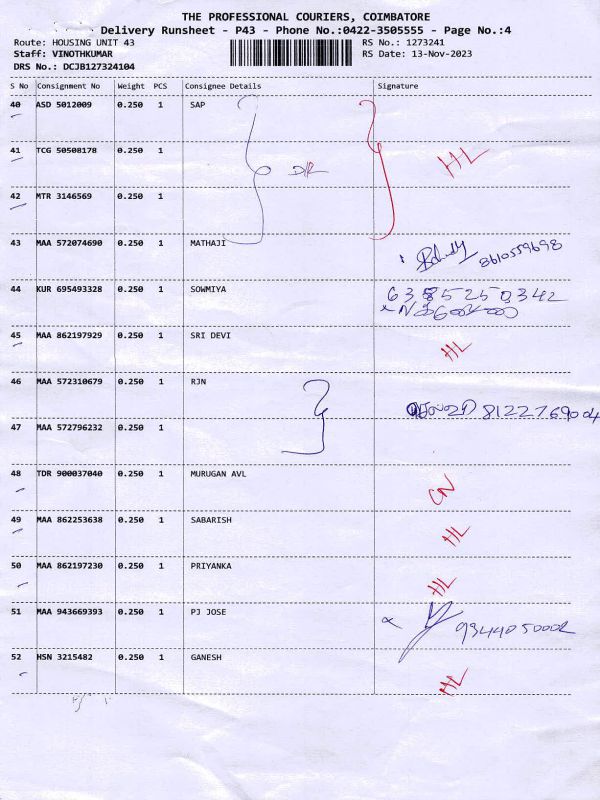 THE PROFESSIONAL COURIERS, COIMBATORE
Delivery Runsheet - P43 - Phone No.:0422-3505555 - Page No.:4
Route: HOUSING UNIT 43 RS No.: 1273241
Staff: VINOTHKUMAR RS Date: 13-Nov-2023
DRS No.: DCJB127324104
S No Consignment No Weight PCS Consignee Details Signature
40 ASD 5012009 0.250 1 SAP
41 TCG 50508178 0.250 1 HL
42 MTR 3146569 0.250 1
43 MAA 572074690 0.250 1 MATHAJI 8610559698
44 KUR 695493328 0.250 1 SOWMIYA
45 MAA 862197929 0.250 1 SRI DEVI HL
46 MAA 572310679 0.250 1 RJN 8122769004
47 MAA 572796232 0.250 1
48 TDR 900037040 0.250 1 MURUGAN AVL CN
49 MAA 862253638 0.250 1 SABARISH HL
50 MAA 862197230 0.250 1 PRIYANKA HL
51 MAA 943669393 0.250 1 PJ JOSE
52 HSN 3215482 0.250 1 GANESH HL